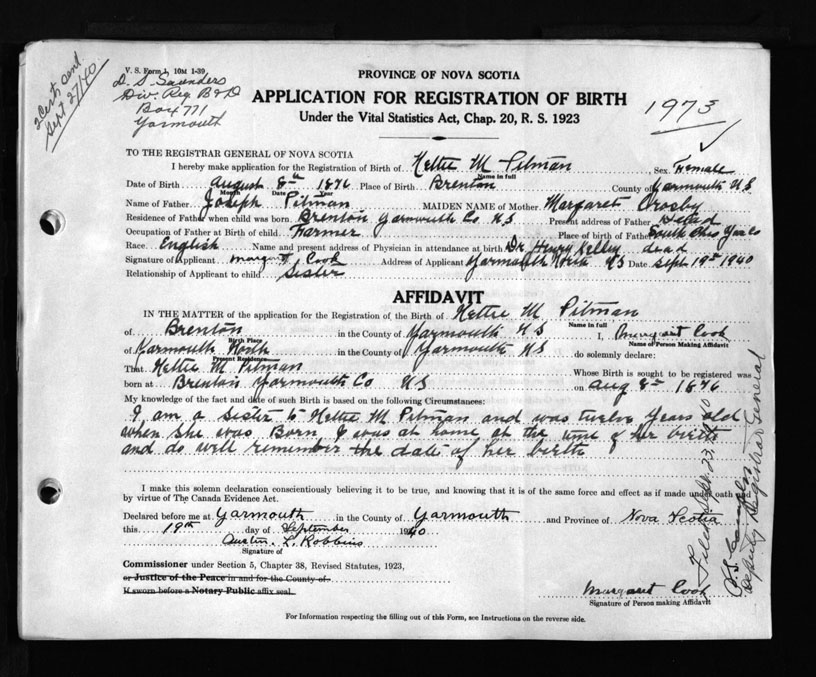 V. S. Form 1, 10M 1-39
D. S. Saunders
Div. Reg. B & D
Box 771
Yarmouth
2 Certs sent
Sept 27/40
PROVINCE OF NOVA SCOTIA
APPLICATION FOR REGISTRATION OF BIRTH
Under the Vital Statistics Act, Chap. 20, R. S. 1923
1973
TO THE REGISTRAR GENERAL OF NOVA SCOTIA
I hereby make application for the Registration of Birth of Nettie M Pitman Sex Female
Name in full
Date of Birth August 8th 1876 Place of Birth Brenton County of Yarmouth N S
Month Date Year
Name of Father Joseph Pitman MAIDEN NAME of Mother Margaret Crosby
Residence of Father when child was born Brenton Yarmouth Co N.S. Present address of Father Dead
Occupation of Father at Birth of child Farmer Place of birth of Father South Ohio Yar Co
Race English Name and present address of Physician in attendance at birth Dr Henry Kelley dead
Signature of Applicant Margaret Cook Address of Applicant Yarmouth North NS Date Sept 19th 1940
Relationship of Applicant to child Sister
AFFIDAVIT
IN THE MATTER of the application for the Registration of the Birth of Nettie M Pitman
Name in full
of Brenton in the County of Yarmouth N S I, Margaret Cook
Birth Place Name of Person Making Affidavit
of Yarmouth North in the County of Yarmouth NS do solemnly declare:
Present Residence
That Nettie M Pitman Whose Birth is sought to be registered was
born at Brenton Yarmouth Co NS on Aug 8th 1876
My knowledge of the fact and date of such Birth is based on the following Circumstances:
I am a Sister to Nettie M Pitman and was twelve years old
when she was Born I was at home at the time of her birth
and do well remember the date of her birth
I make this solemn declaration conscientiously believing it to be true, and knowing that it is of the same force and effect as if made under oath and
by virtue of The Canada Evidence Act.
Declared before me at Yarmouth in the County of Yarmouth and Province of Nova Scotia
this 19th day of September 1940
Austin L. Robbins
Signature of
Commissioner under Section 5, Chapter 38, Revised Statutes, 1923,
or Justice of the Peace in and for the County of
If sworn before a Notary Public affix seal.
Margaret Cook
Signature of Person making Affidavit
For Information respecting the filling out of this Form, see Instructions on the reverse side.
Filed Sept. 23, 1940
Deputy Registrar General